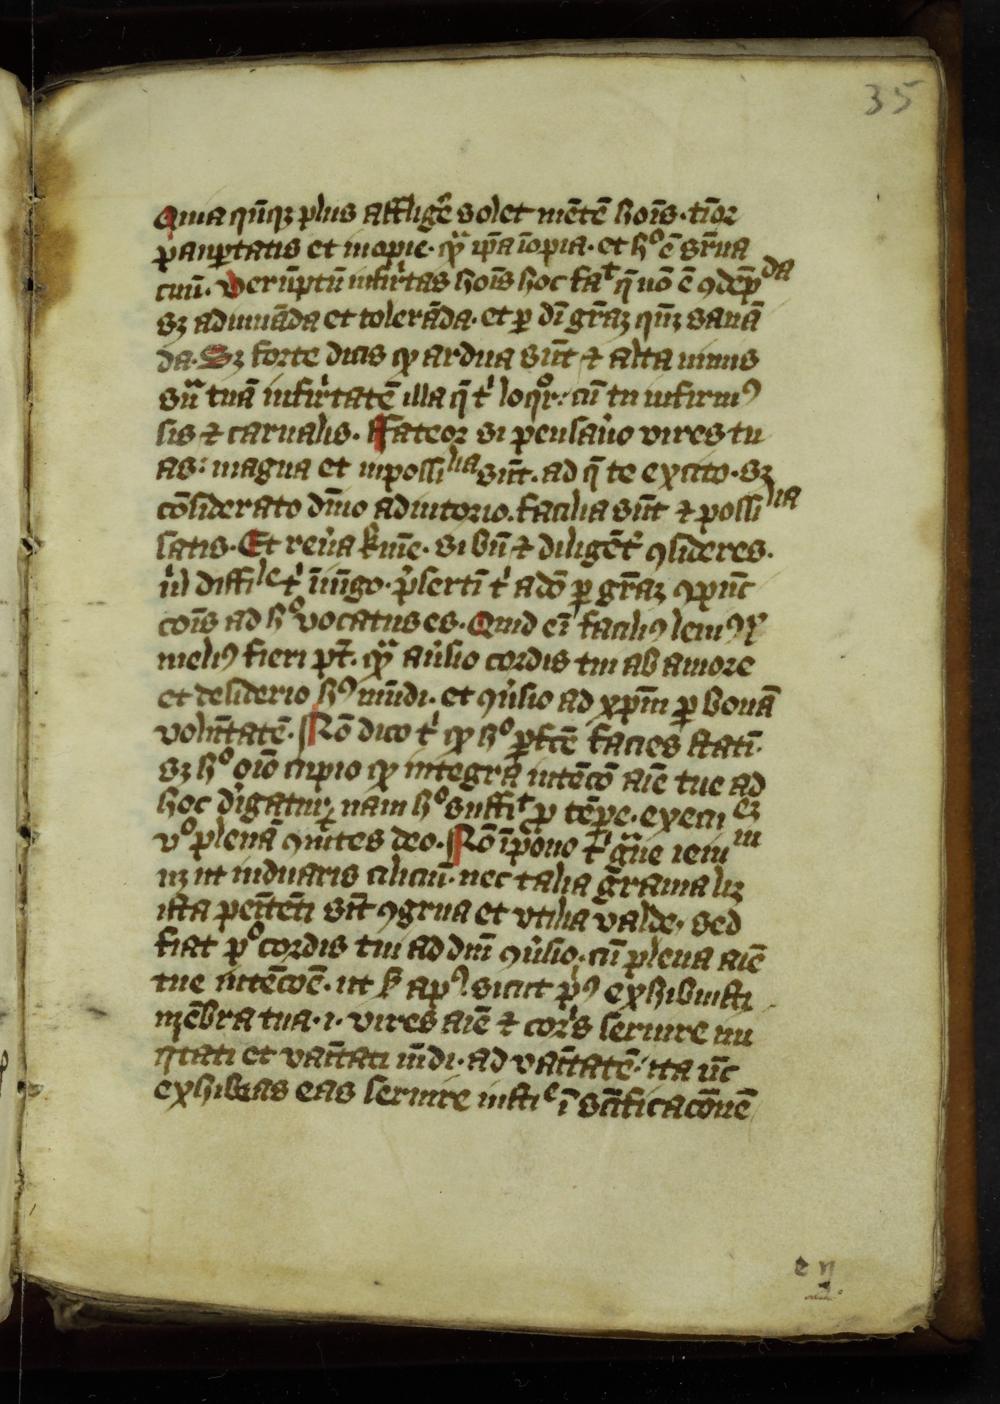 35
Quia qn̄qꝫ plus affligē solet mētē hoīs · timor
paup̄tatis et inopie · qͣ ip̄a īopia · et hͦ ē sr̄na
cuū · Verūptū infirͥtas hoīs hoc faᵗ q̄ nō ē ꝯdēp̄ ᵈᵃ
sꝫ adiuuāda et tolerāda · et ꝑ dī gr̄aꝫ qn̄ꝫ sanā
da · Sꝫ forte dicis ꝙ ardua sūt ⁊ alta nimis
suͣ tuā infirͥtatē illa q̄ tͥ loqͦr : cū tu infirmꝰ
sis ⁊ carnalis · ffateor si pensaūo vires tu
as : magna et inpossiˡⁱᵃ sūt · ad q̄ te excito · sꝫ
cōsiderato dīno adiutorio · facilia sūt ⁊ possiˡⁱᵃ
satis · Et reūa kīne · si bn̄ ⁊ diligēt̄ ꝯsideres ·
diffiˡᵉ tͥ īiūgo · p̄sertī tͥ adō ꝑ gr̄aꝫ
ad hͦ vocatus es · Quid eī faciliꝰ leuiꝰ ⁊
meliꝰ fieri pt̄ · qͣ aūsio cordis tui ab amore
et desiderio hꝰ mūdi · et ꝯūsio ad xp̄m ꝑ bonā
volūtatē · Nō dico tͥ ꝙ hͦ ꝑfcē facies statī ·
sꝫ hͦ oīo cupio ꝙ integra intēcō aīe tue ad
hoc dͥigatur nam hͦ suffiᵗ ꝓ tēꝑe · exeqͥ
vͦ plenā ꝯuītes deo · Nō īpono tͥ gͣue ieiu ⁿⁱ
uꝫ ut induaris ciliciū · nec talia gramaliꝫ
ista penitēti sūt ꝯgrua et vtilia valde, sed
fiat pͦ cordis tui ad dm̄ ꝯūsio · cū plena aīe
tue intēcōe · ut k apꝰl · sicut pͥꝰ exhibuisti
mēbra tua · i · vires aīe ⁊ corͥs seruire ini
qtati et vanitati mūdi · ad vanitatē · ita nūc
exhibeas eas seruire iustiᵉ ī sc̄ificacōnē
e ij